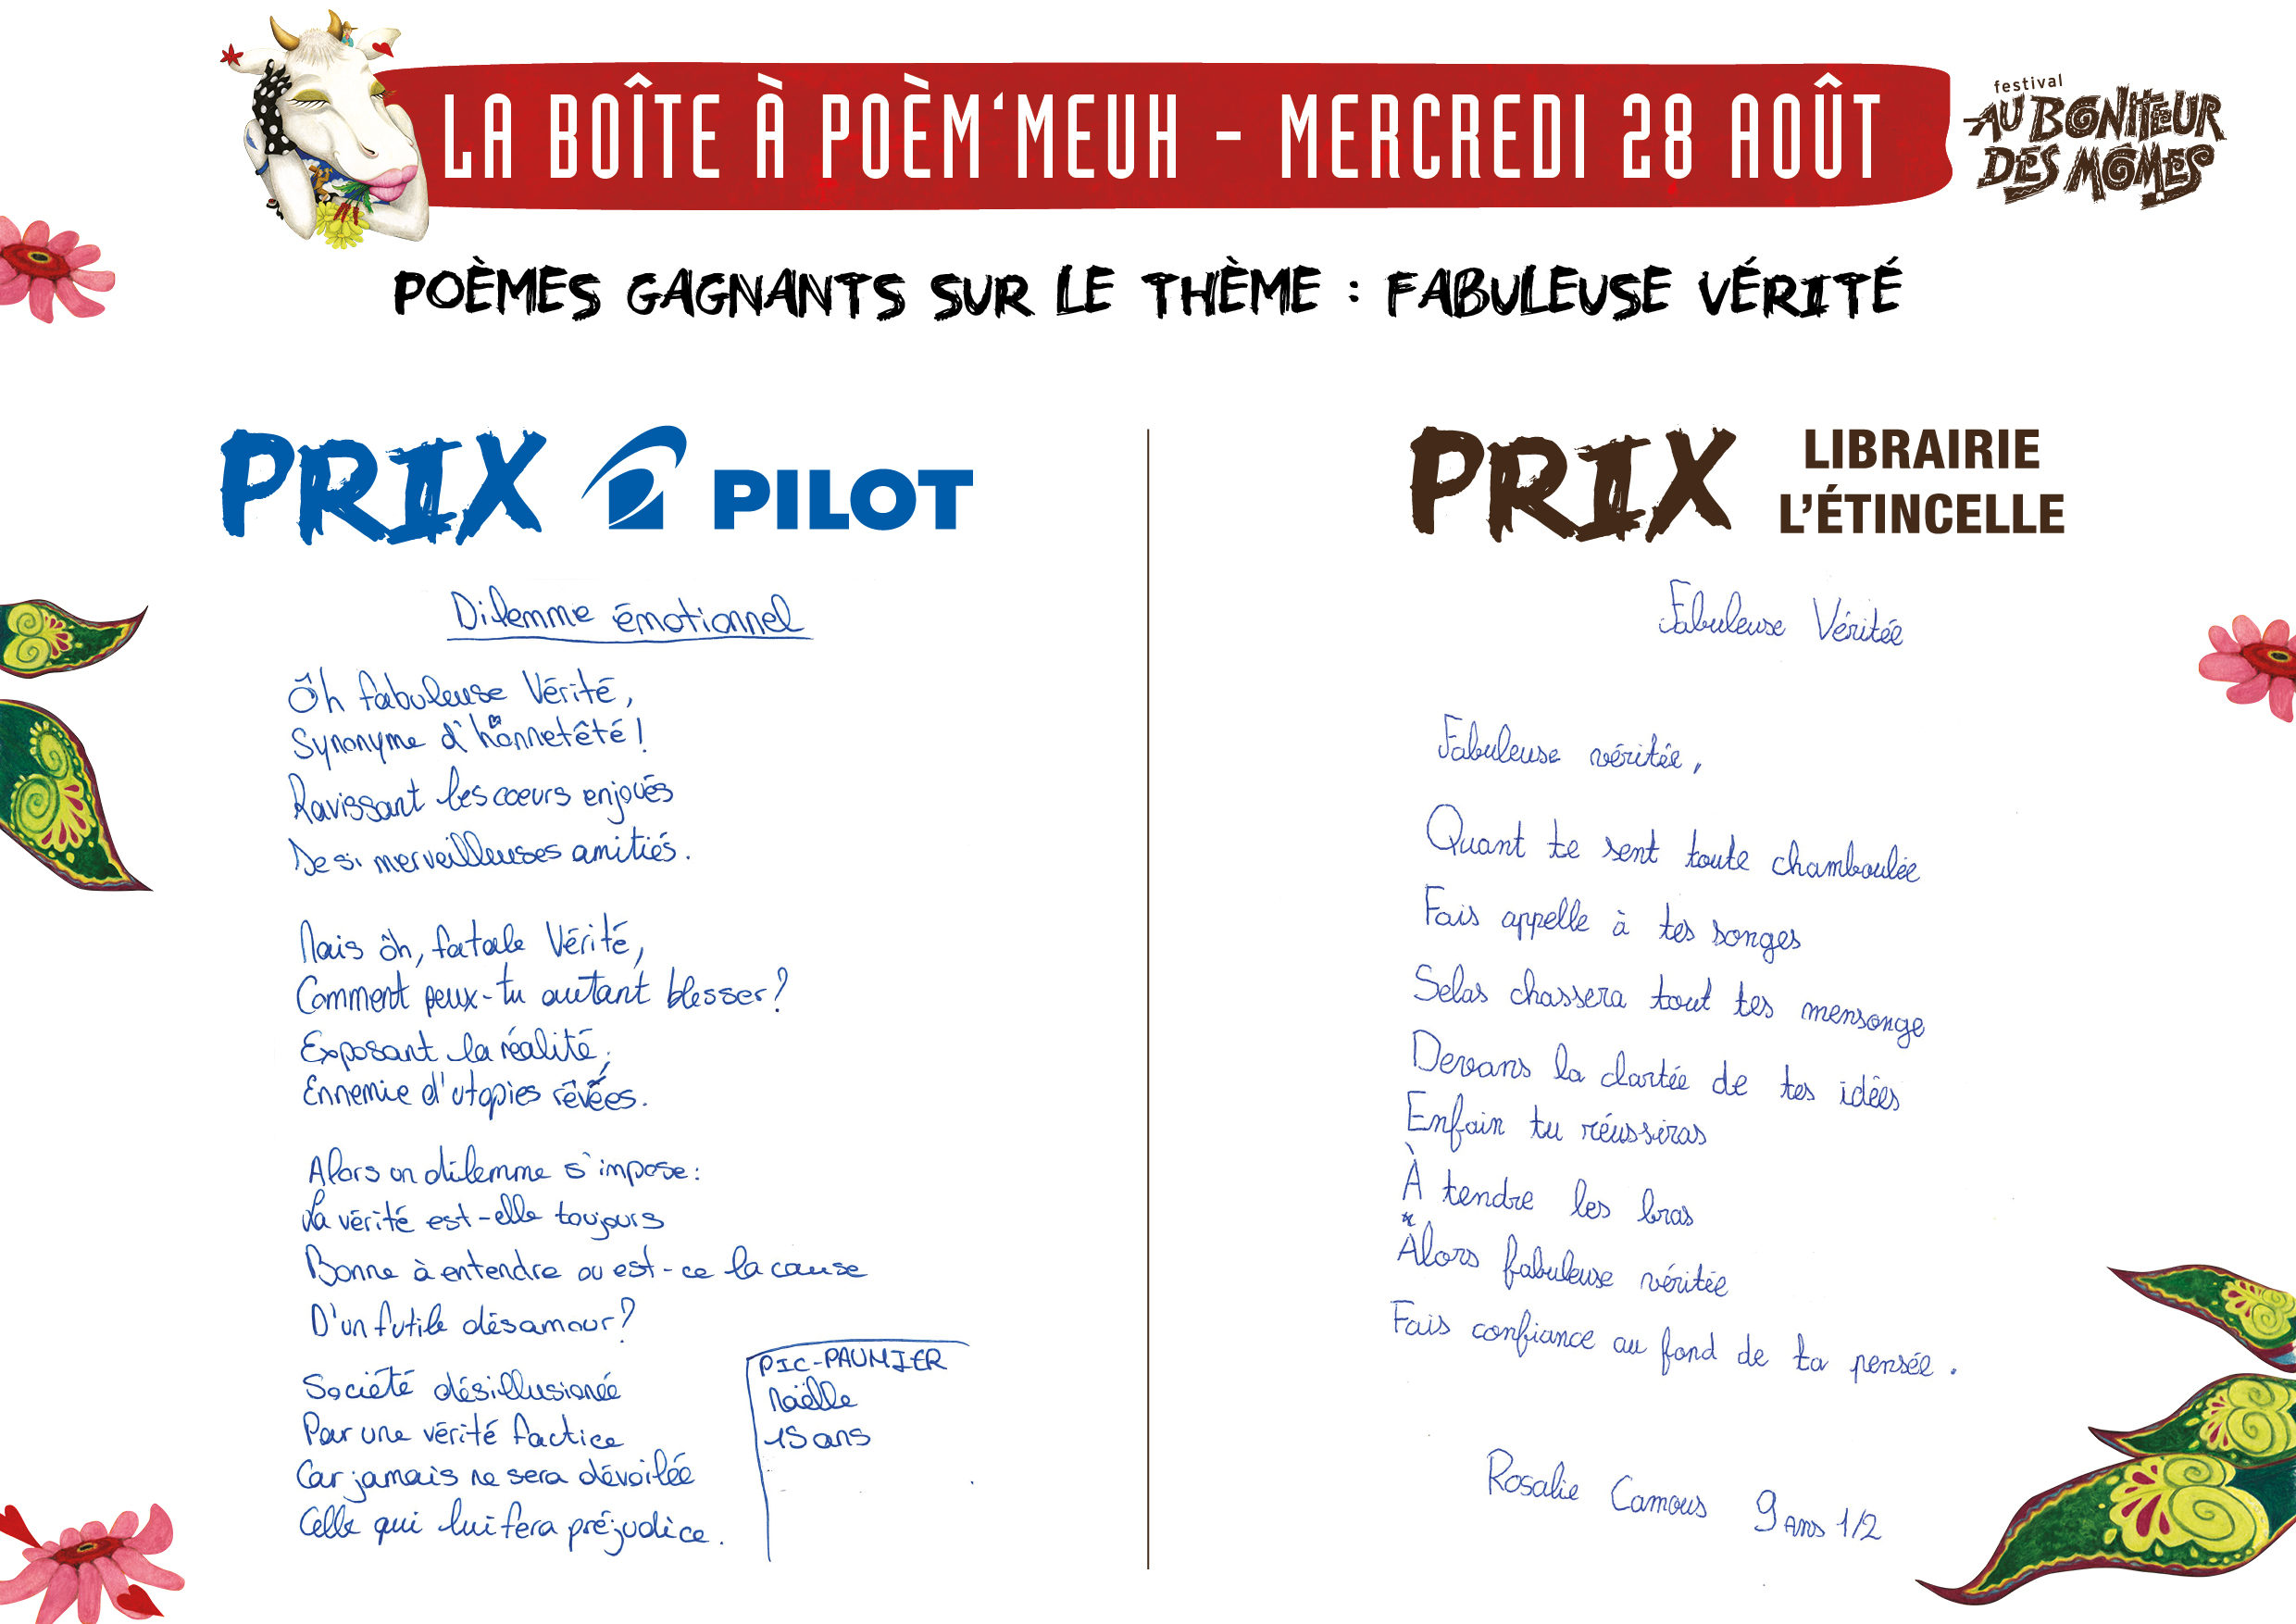 LA BOÎTE À POÈM'MEUH - MERCREDI 28 AOÛT
festival
AU BONHEUR
DES MÔMES
POÈMES GAGNANTS SUR LE THÈME : FABULEUSE VÉRITÉ
PRIX PILOT
Dilemme émotionnel
Ôh fabuleuse Vérité,
Synonyme d'honnetêté !
Ravissant les cœurs enjoués
De si merveilleuses amitiés.
Mais ôh, fatale Vérité,
Comment peux-tu autant blesser ?
Exposant la réalité,
Ennemie d'utopies rêvées.
Alors un dilemme s'impose :
La vérité est-elle toujours
Bonne à entendre ou est-ce la cause
D'un futile désamour ?
Société désillusionée
Par une vérité factice
Car jamais ne sera dévoilée
Celle qui lui fera préjudice.
PIC-PAUMIER
Naëlle
15 ans
PRIX LIBRAIRIE
L'ÉTINCELLE
Fabuleuse Véritée
Fabuleuse véritée,
Quant te sent toute chamboulée
Fais appelle à tes songes
Selas chassera tout tes mensonge
Devans la clartée de tes idées
Enfain tu réussiras
À tendre les bras
Alors fabuleuse véritée
Fais confiance au fond de ta pensée.
Rosalie Camous 9 ans 1/2